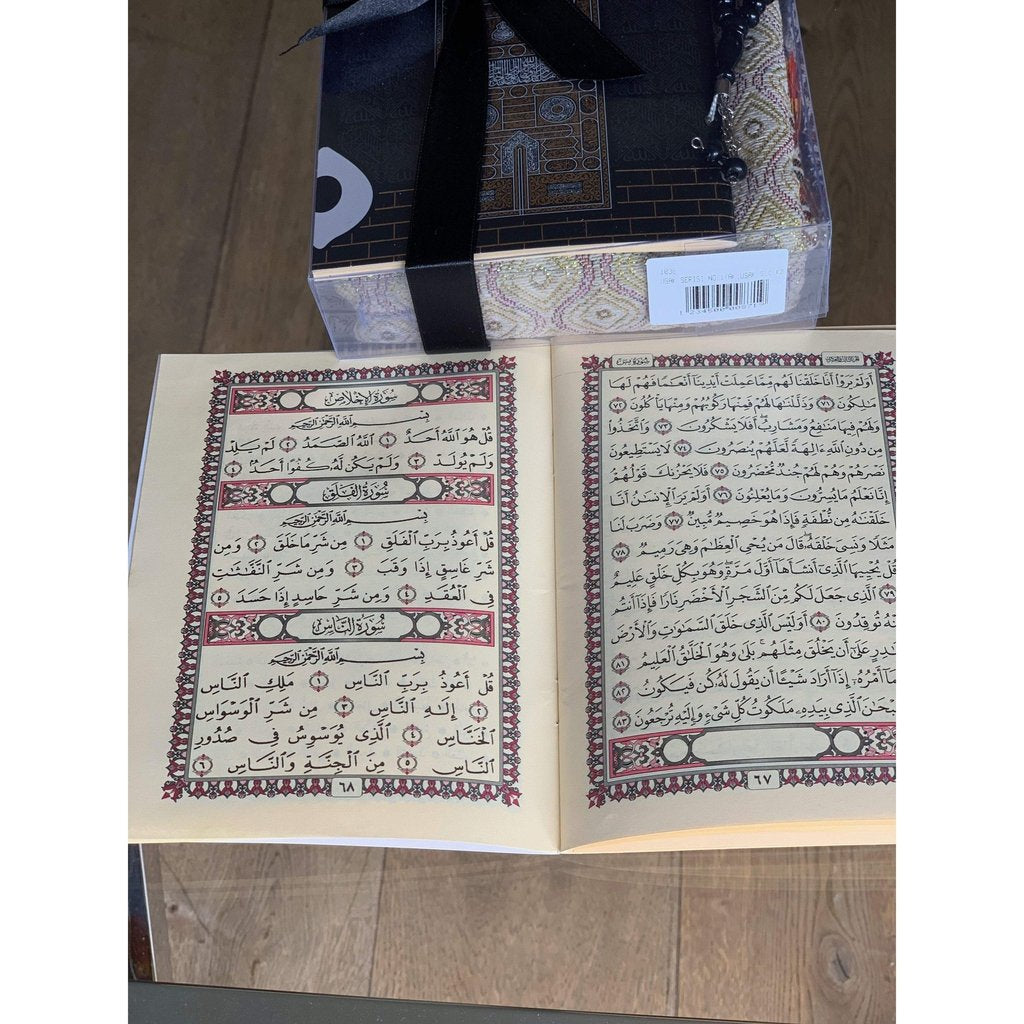 الجزء الثالث والعشرون سُورَةُ يسٓ
أَوَلَمْ يَرَوْا۟ أَنَّا خَلَقْنَا لَهُم مِّمَّا عَمِلَتْ أَيْدِينَآ أَنْعَـٰمًا فَهُمْ لَهَا
مَـٰلِكُونَ ٧١ وَذَلَّلْنَـٰهَا لَهُمْ فَمِنْهَا رَكُوبُهُمْ وَمِنْهَا يَأْكُلُونَ ٧٢
وَلَهُمْ فِيهَا مَنَـٰفِعُ وَمَشَارِبُ أَفَلَا يَشْكُرُونَ ٧٣ وَٱتَّخَذُوا۟
مِن دُونِ ٱللَّهِ ءَالِهَةً لَّعَلَّهُمْ يُنصَرُونَ ٧٤ لَا يَسْتَطِيعُونَ
نَصْرَهُمْ وَهُمْ لَهُمْ جُندٌ مُّحْضَرُونَ ٧٥ فَلَا يَحْزُنكَ قَوْلُهُمْ
إِنَّا نَعْلَمُ مَا يُسِرُّونَ وَمَا يُعْلِنُونَ ٧٦ أَوَلَمْ يَرَ ٱلْإِنسَـٰنُ أَنَّا
خَلَقْنَـٰهُ مِن نُّطْفَةٍ فَإِذَا هُوَ خَصِيمٌ مُّبِينٌ ٧٧ وَضَرَبَ لَنَا
مَثَلًا وَنَسِىَ خَلْقَهُۥ قَالَ مَن يُحْىِ ٱلْعِظَـٰمَ وَهِىَ رَمِيمٌ ٧٨
قُلْ يُحْيِيهَا ٱلَّذِىٓ أَنشَأَهَآ أَوَّلَ مَرَّةٍ وَهُوَ بِكُلِّ خَلْقٍ عَلِيمٌ
٧٩ ٱلَّذِى جَعَلَ لَكُم مِّنَ ٱلشَّجَرِ ٱلْأَخْضَرِ نَارًا فَإِذَآ أَنتُم
نْهُ تُوقِدُونَ ٨٠ أَوَلَيْسَ ٱلَّذِى خَلَقَ ٱلسَّمَـٰوَٰتِ وَٱلْأَرْضَ
ـدِرٍ عَلَىٰٓ أَن يَخْلُقَ مِثْلَهُم بَلَىٰ وَهُوَ ٱلْخَلَّـٰقُ ٱلْعَلِيمُ ٨١
ـمَآ أَمْرُهُۥٓ إِذَآ أَرَادَ شَيْـًٔا أَن يَقُولَ لَهُۥ كُن فَيَكُونُ ٨٢
ـبْحَـٰنَ ٱلَّذِى بِيَدِهِۦ مَلَكُوتُ كُلِّ شَىْءٍ وَإِلَيْهِ تُرْجَعُونَ ٨٣
٦٧
سُورَةُ الإِخْلَاصِ
بِسْمِ ٱللَّهِ ٱلرَّحْمَـٰنِ ٱلرَّحِيمِ
قُلْ هُوَ ٱللَّهُ أَحَدٌ ١ ٱللَّهُ ٱلصَّمَدُ ٢ لَمْ يَلِدْ
وَلَمْ يُولَدْ ٣ وَلَمْ يَكُن لَّهُۥ كُفُوًا أَحَدٌ ٤
سُورَةُ الفَلَقِ
بِسْمِ ٱللَّهِ ٱلرَّحْمَـٰنِ ٱلرَّحِيمِ
قُلْ أَعُوذُ بِرَبِّ ٱلْفَلَقِ ١ مِن شَرِّ مَا خَلَقَ ٢ وَمِن
شَرِّ غَاسِقٍ إِذَا وَقَبَ ٣ وَمِن شَرِّ ٱلنَّفَّـٰثَـٰتِ
فِى ٱلْعُقَدِ ٤ وَمِن شَرِّ حَاسِدٍ إِذَا حَسَدَ ٥
سُورَةُ النَّاسِ
بِسْمِ ٱللَّهِ ٱلرَّحْمَـٰنِ ٱلرَّحِيمِ
قُلْ أَعُوذُ بِرَبِّ ٱلنَّاسِ ١ مَلِكِ ٱلنَّاسِ
٢ إِلَـٰهِ ٱلنَّاسِ ٣ مِن شَرِّ ٱلْوَسْوَاسِ
ٱلْخَنَّاسِ ٤ ٱلَّذِى يُوَسْوِسُ فِى صُدُورِ
ٱلنَّاسِ ٥ مِنَ ٱلْجِنَّةِ وَٱلنَّاسِ ٦
٦٨